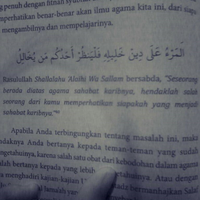 g penuh dengan fitnah syahwat
mperhatikan benar-benar akan ilmu agama kita ini, dari siapa
mengambilnya dan mempelajarinya.
الْمَرْءُ عَلَى دِينِ خَلِيلِهِ فَلْيَنْظُرْ أَحَدُكُمْ مَنْ يُخَالِلُ
Rasulullah Shallallahu Alaihi Wa Sallam bersabda, "Seseorang
berada diatas agama sahabat karibnya, hendaklah salah
seorang dari kamu memperhatikan siapakah yang menjadi
sahabat karibnya."
Apabila Anda terbingungkan tentang masalah ini, maka
ndaknya Anda bertanya kepada teman-teman yang sudah
ngetahuinya, karena salah satu obat dari kebodohan dalam agama
lah bertanya kepada yang lebih
Atau dengan
menghadiri kajian-kajian